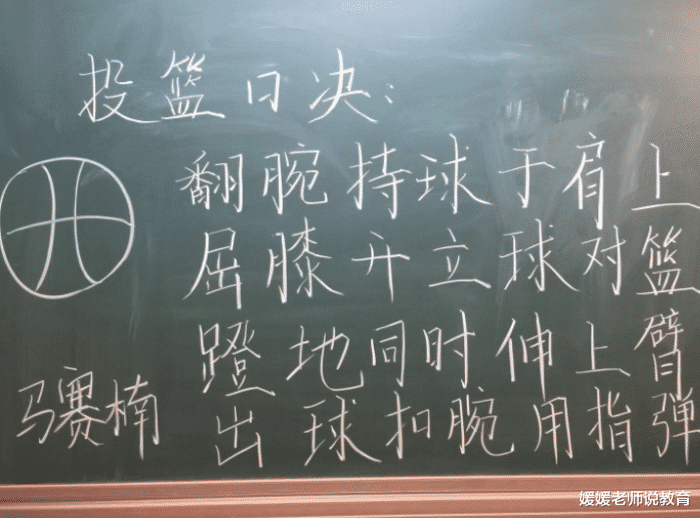 投篮口决:
翻腕持球于肩上
屈膝开立球对篮
蹬地同时伸上臂
出球扣腕用指弹
马赛楠
媛媛老师说教育